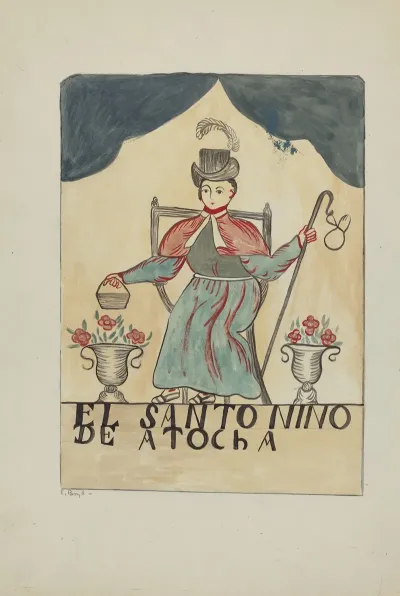 EL SANTO NINO
DE ATOChA